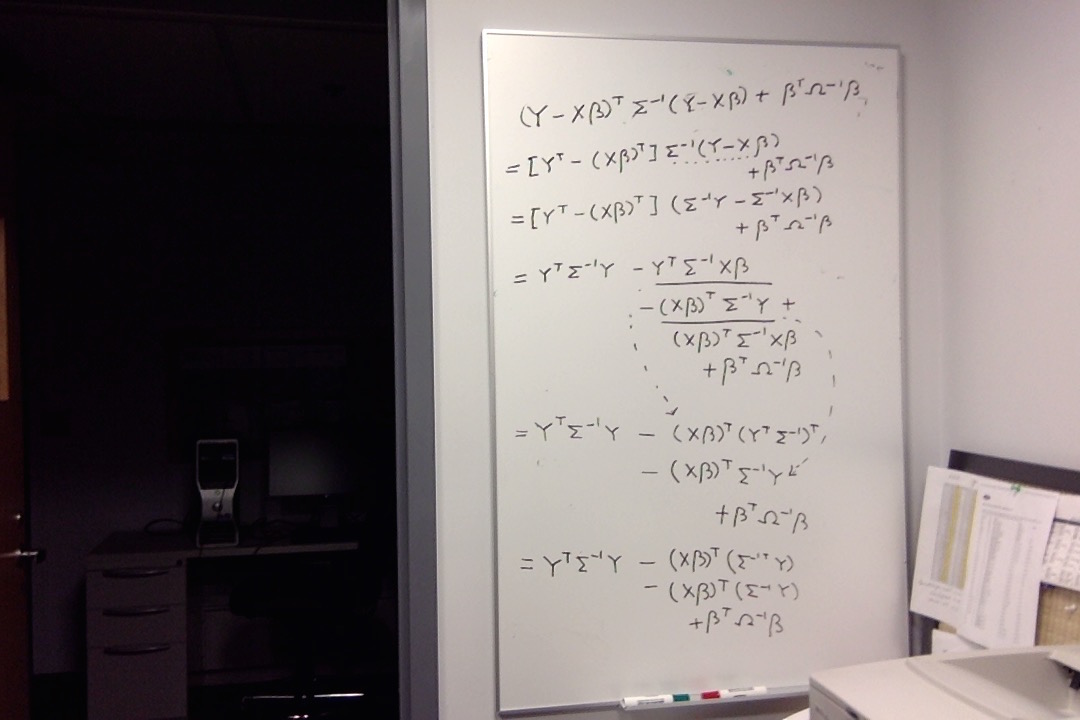 (Y - Xβ)ᵀ Σ⁻¹(Y - Xβ) + βᵀΩ⁻¹β
= [Yᵀ - (Xβ)ᵀ] Σ⁻¹(Y - Xβ)
+ βᵀΩ⁻¹β
= [Yᵀ - (Xβ)ᵀ] (Σ⁻¹Y - Σ⁻¹Xβ)
+ βᵀΩ⁻¹β
= YᵀΣ⁻¹Y - YᵀΣ⁻¹Xβ
- (Xβ)ᵀ Σ⁻¹Y +
(Xβ)ᵀ Σ⁻¹Xβ
+ βᵀΩ⁻¹β
= YᵀΣ⁻¹Y - (Xβ)ᵀ(YᵀΣ⁻¹)ᵀ
- (Xβ)ᵀ Σ⁻¹Y
+ βᵀΩ⁻¹β
= YᵀΣ⁻¹Y - (Xβ)ᵀ(Σ⁻¹ᵀY)
- (Xβ)ᵀ(Σ⁻¹Y)
+ βᵀΩ⁻¹β